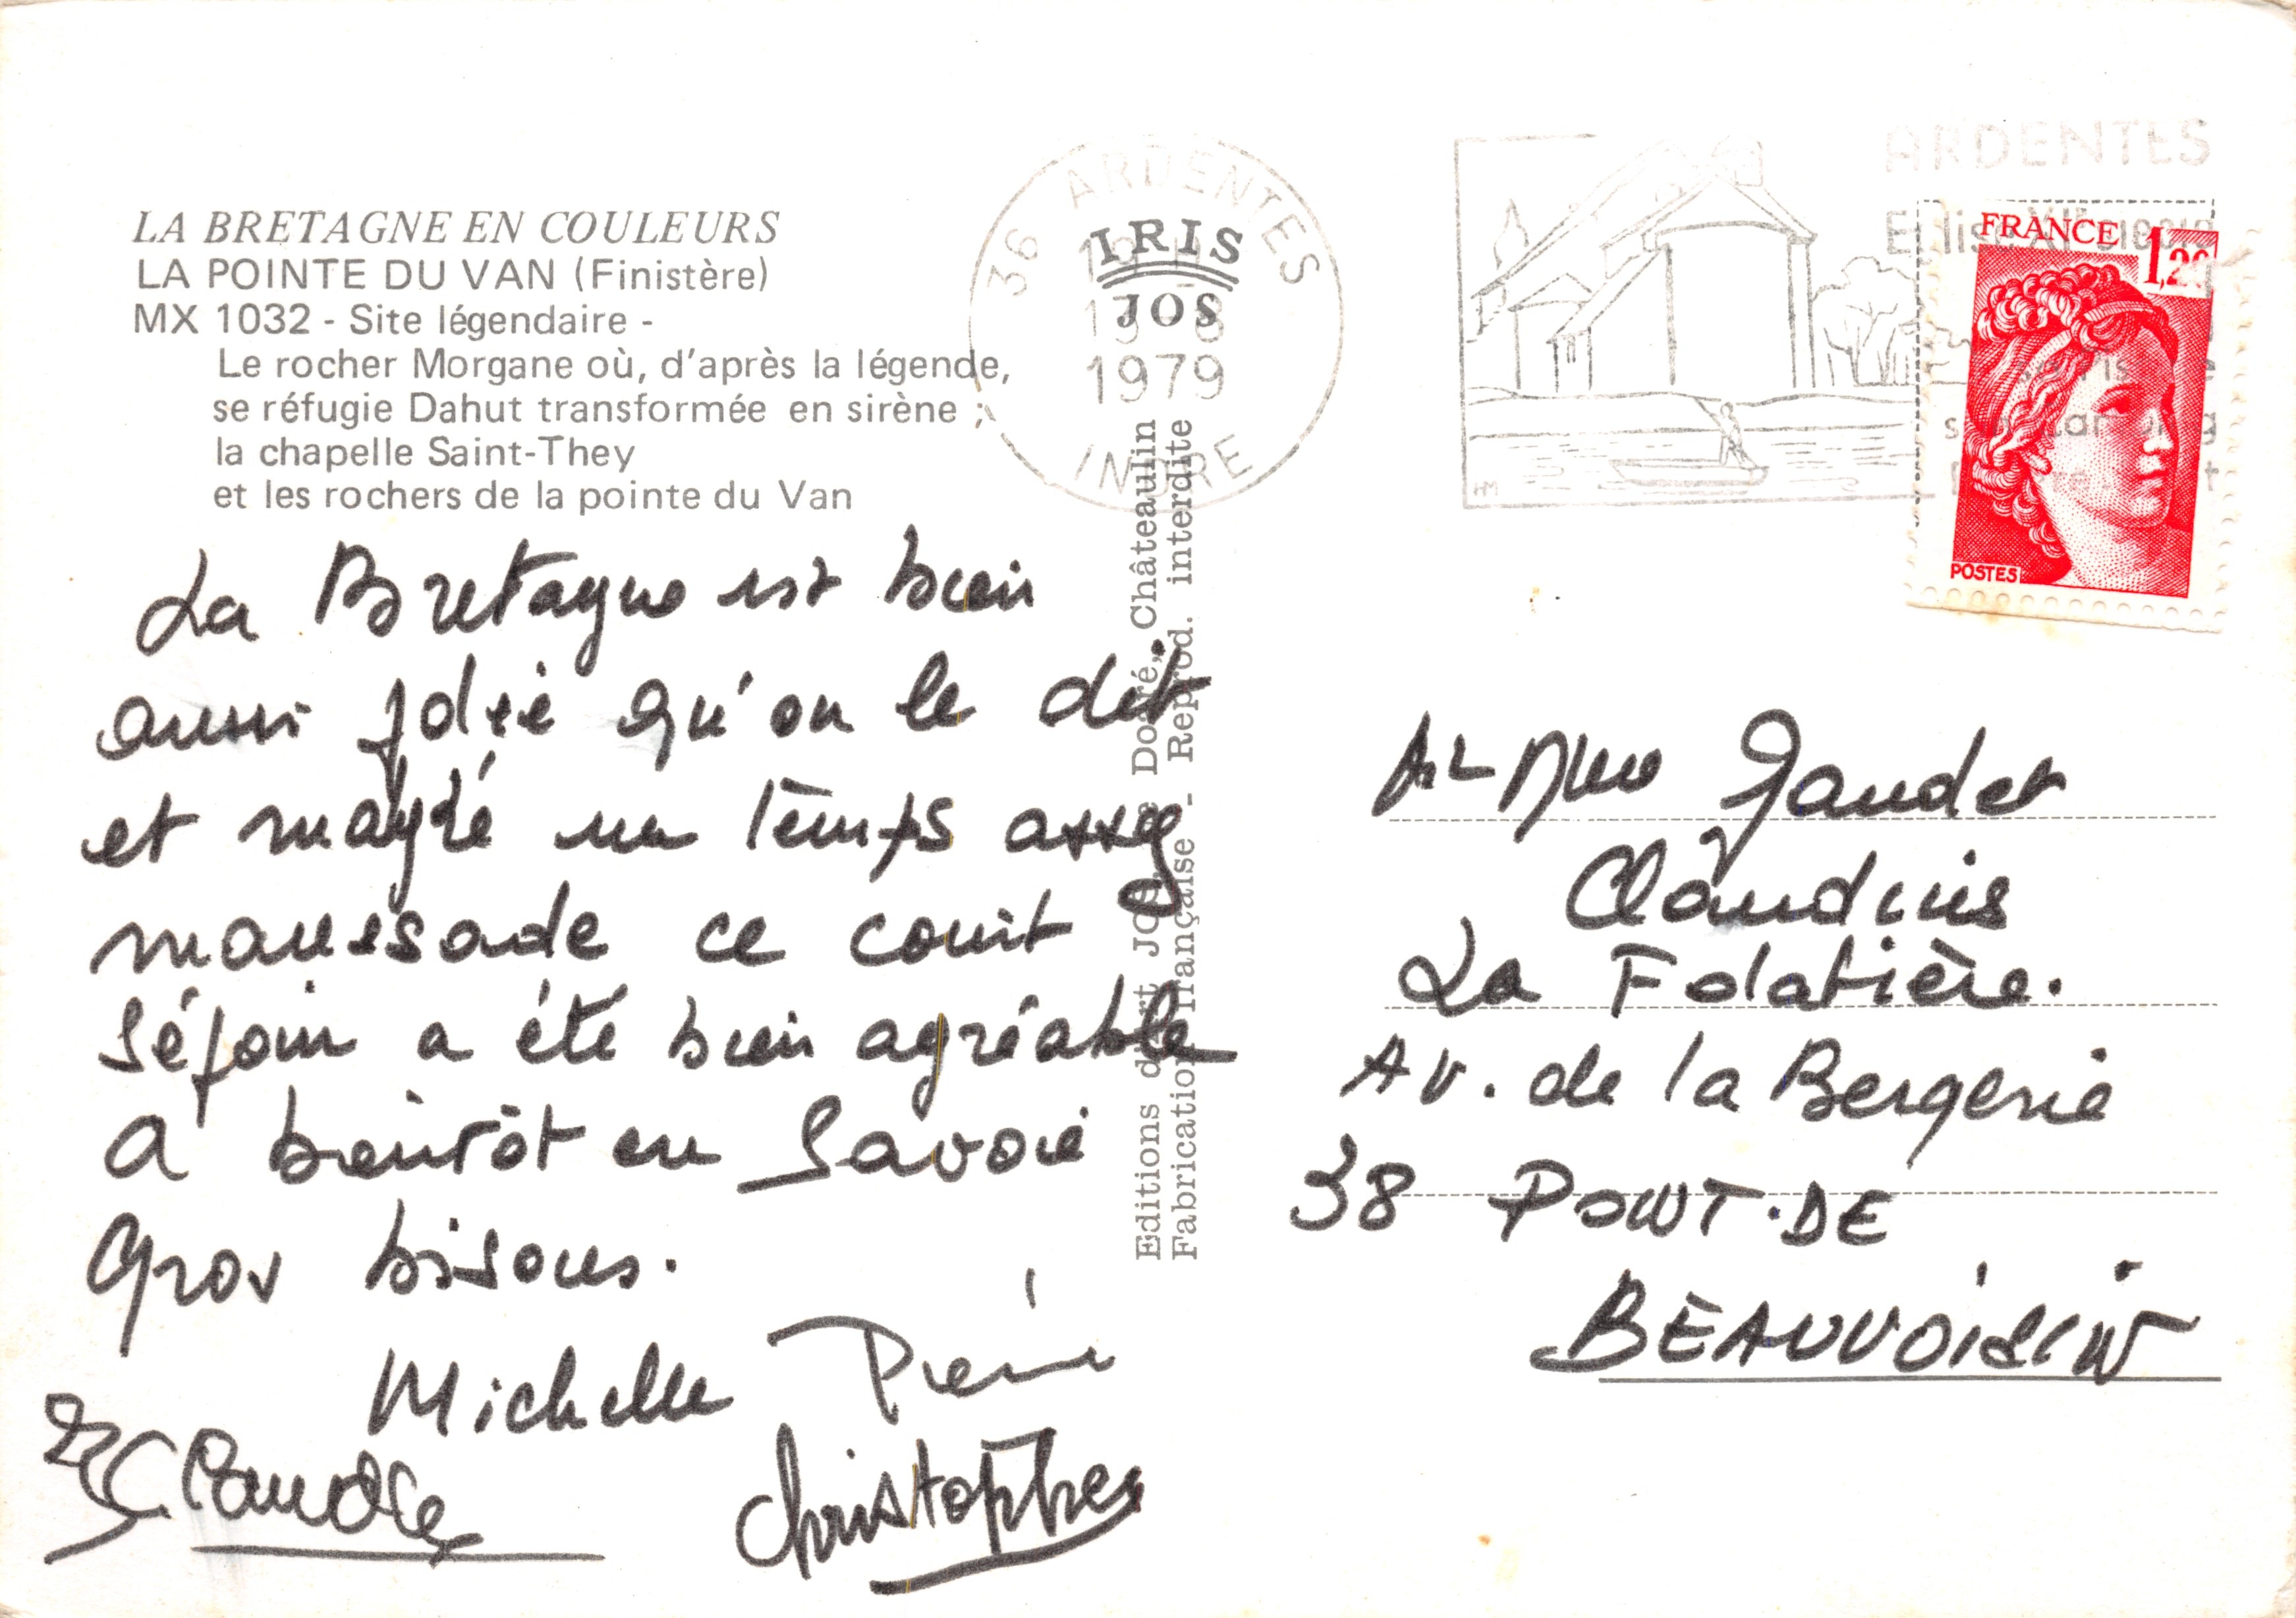 LA BRETAGNE EN COULEURS
LA POINTE DU VAN (Finistère)
MX 1032 - Site légendaire -
Le rocher Morgane où, d'après la légende,
se réfugie Dahut transformée en sirène ;
la chapelle Saint-They
et les rochers de la pointe du Van
La Bretagne est bien
aussi jolie qu'on le dit
et malgré un temps assez
maussade ce court
séjour a été bien agréable
A bientôt en Savoie
Gros bisous.
Michelle Pierre
Claudie
Christophe
36 ARDENTES
1979
INDRE
IRIS
JOS
Editions d'art JOS Le Doaré, Châteaulin
Fabrication française - Reprod. interdite
ARDENTES
Eglise XIIe siècle
FRANCE
1,20
POSTES
Mme Gaudet
Claudius
La Folatière.
Av. de la Bergerie
38 PONT-DE
BEAUVOISIN